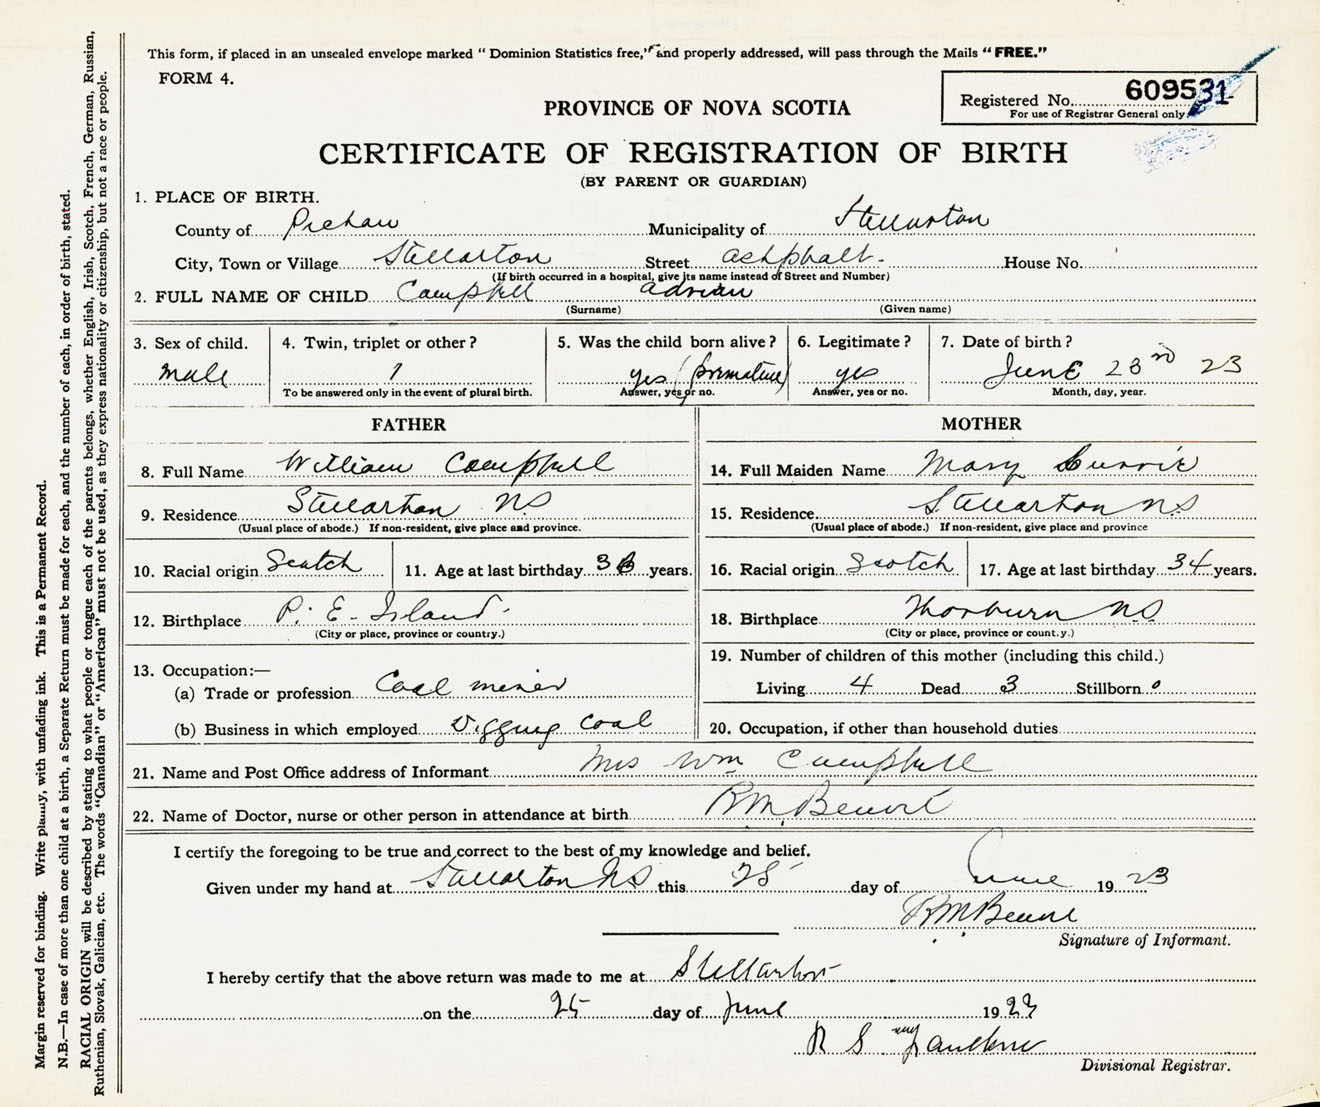 This form, if placed in an unsealed envelope marked "Dominion Statistics free," and properly addressed, will pass through the Mails "FREE."
FORM 4.
Registered No. 609531
For use of Registrar General only.
PROVINCE OF NOVA SCOTIA
CERTIFICATE OF REGISTRATION OF BIRTH
(BY PARENT OR GUARDIAN)
1. PLACE OF BIRTH.
County of Pictou Municipality of Stellarton
City, Town or Village Stellarton Street Ashphalt. House No.
(If birth occurred in a hospital, give its name instead of Street and Number)
2. FULL NAME OF CHILD Campbell Adrian
(Surname) (Given name)
3. Sex of child. 4. Twin, triplet or other? 5. Was the child born alive? 6. Legitimate? 7. Date of birth?
male 1 yes (premature) yes June 23rd 23
To be answered only in the event of plural birth. Answer, yes or no. Answer, yes or no. Month, day, year.
FATHER MOTHER
8. Full Name William Campbell 14. Full Maiden Name Mary Currie
9. Residence Stellarton NS 15. Residence Stellarton NS
(Usual place of abode.) If non-resident, give place and province. (Usual place of abode.) If non-resident, give place and province
10. Racial origin Scotch 11. Age at last birthday years. 16. Racial origin Scotch 17. Age at last birthday 34 years.
12. Birthplace P. E. Island. 18. Birthplace Thorburn N.S.
(City or place, province or country.) (City or place, province or count.y.)
13. Occupation:— 19. Number of children of this mother (including this child.)
(a) Trade or profession Coal miner Living 4 Dead 3 Stillborn 0
(b) Business in which employed Digging Coal 20. Occupation, if other than household duties
21. Name and Post Office address of Informant Mrs Wm Campbell
22. Name of Doctor, nurse or other person in attendance at birth
I certify the foregoing to be true and correct to the best of my knowledge and belief.
Given under my hand at Stellarton NS this 25 day of June 19 23
Signature of Informant.
I hereby certify that the above return was made to me at Stellarton
on the 25 day of June 19 23
Divisional Registrar.
Margin reserved for binding. Write plainly, with unfading ink. This is a Permanent Record.
N.B.—In case of more than one child at a birth, a Separate Return must be made for each, and the number of each, in order of birth, stated.
RACIAL ORIGIN will be described by stating to what people or tongue each of the parents belongs, whether English, Irish, Scotch, French, German, Russian,
Ruthenian, Slovak, Galician, etc. The words "Canadian" or "American" must not be used, as they express nationality or citizenship, but not a race or people.